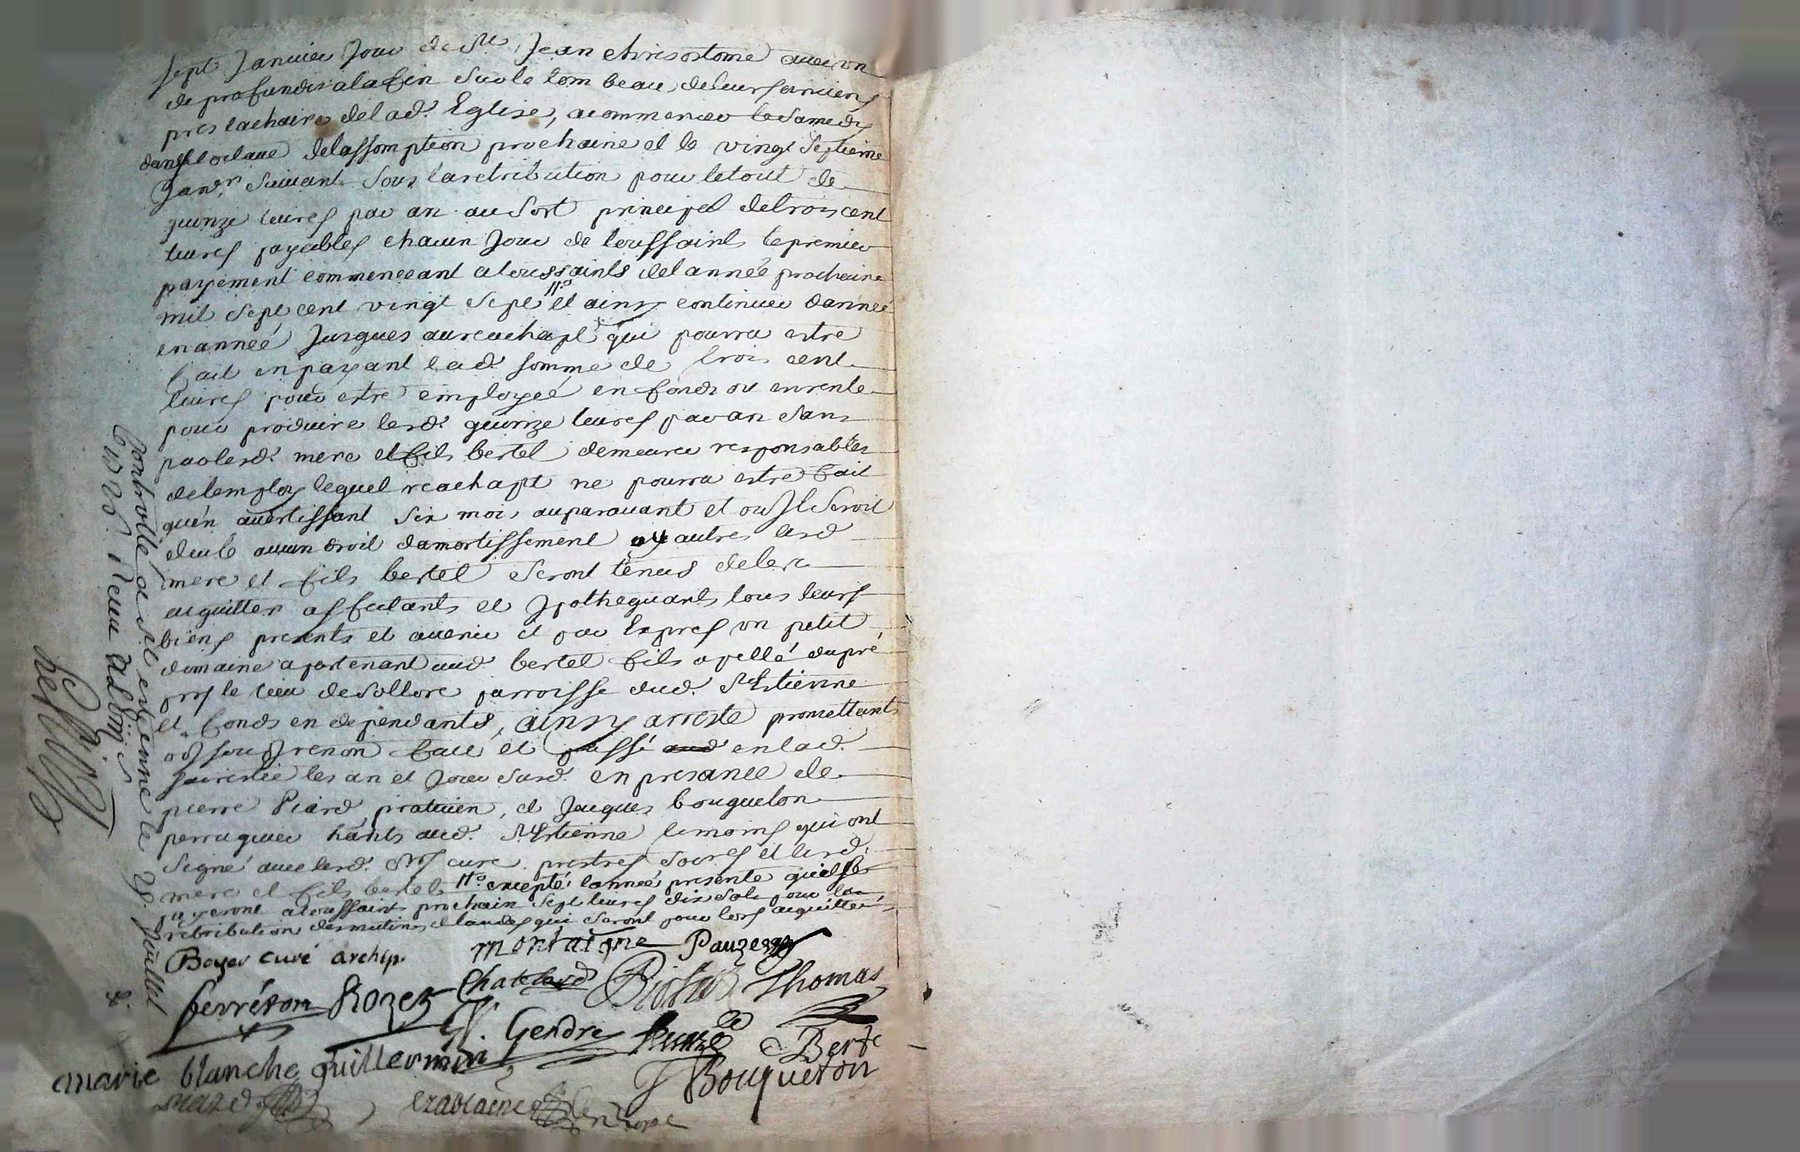 sept Janvier Jour de St Jean chrisostome avec un
de profundis a la fin sur le tombeau de leurs anciens
pres la chaire de lad. Eglise, a commencer le samedy
dans loctave de lassomption prochaine et le vingt septieme
Janvr suivant sous la retribution pour le tout de
quinze livres par an au sort principal de trois cent
livres payables chacun Jour de toussaints le premier
payement commenceant a toussaints de lannée prochaine
mil sept cent vingt sept et ainsy continuer dannée
en année Jusques au reachapt qui pourra estre
fait en payant lad somme de trois cent
livres pour estre employée en fonds ou en rente
pour produire lesd. quinze livres par an sans
que lesd. mere et fils bertet demeurer responsables
de lemploy lequel reachapt ne pourra estre fait
quén avertissant six mois auparavant et ou Il seroit
deub aucun droit damortissement ou autres lesd
mere et fils bertet seront tenus de les
acquitter affectants et Ipothequants tous leurs
biens presents et avenir et par Expres un petit
domaine apartenant aud bertet fils apellé dupré
sis le lieu de sollore parroisse dud. St Estienne
et fonds en dependants, ainsy arresté promettants
obs sous renon fait et passé aud en lad.
sacristie les an et Jour susd. en presance de
pierre Piard praticien, et Jacques bouqueton
perruquier hants aud. St Estienne temoins qui ont
signé avec lesd. srs curé prestres socres et lesd.
mere et fils bertet excepté lannée presente quils
payeront a toussaint prochain sept livres dix sols pour la
retribution des matines et laudes qui seront pour lors acquittées
Boyer curé archip. montaigne Pauze
ferréton Rozet Chatelard Thomas
Gendre Berte
marie blanche guillermin J Bouqueton
Controllé a St estienne le 28 Juillet
1726. Receu